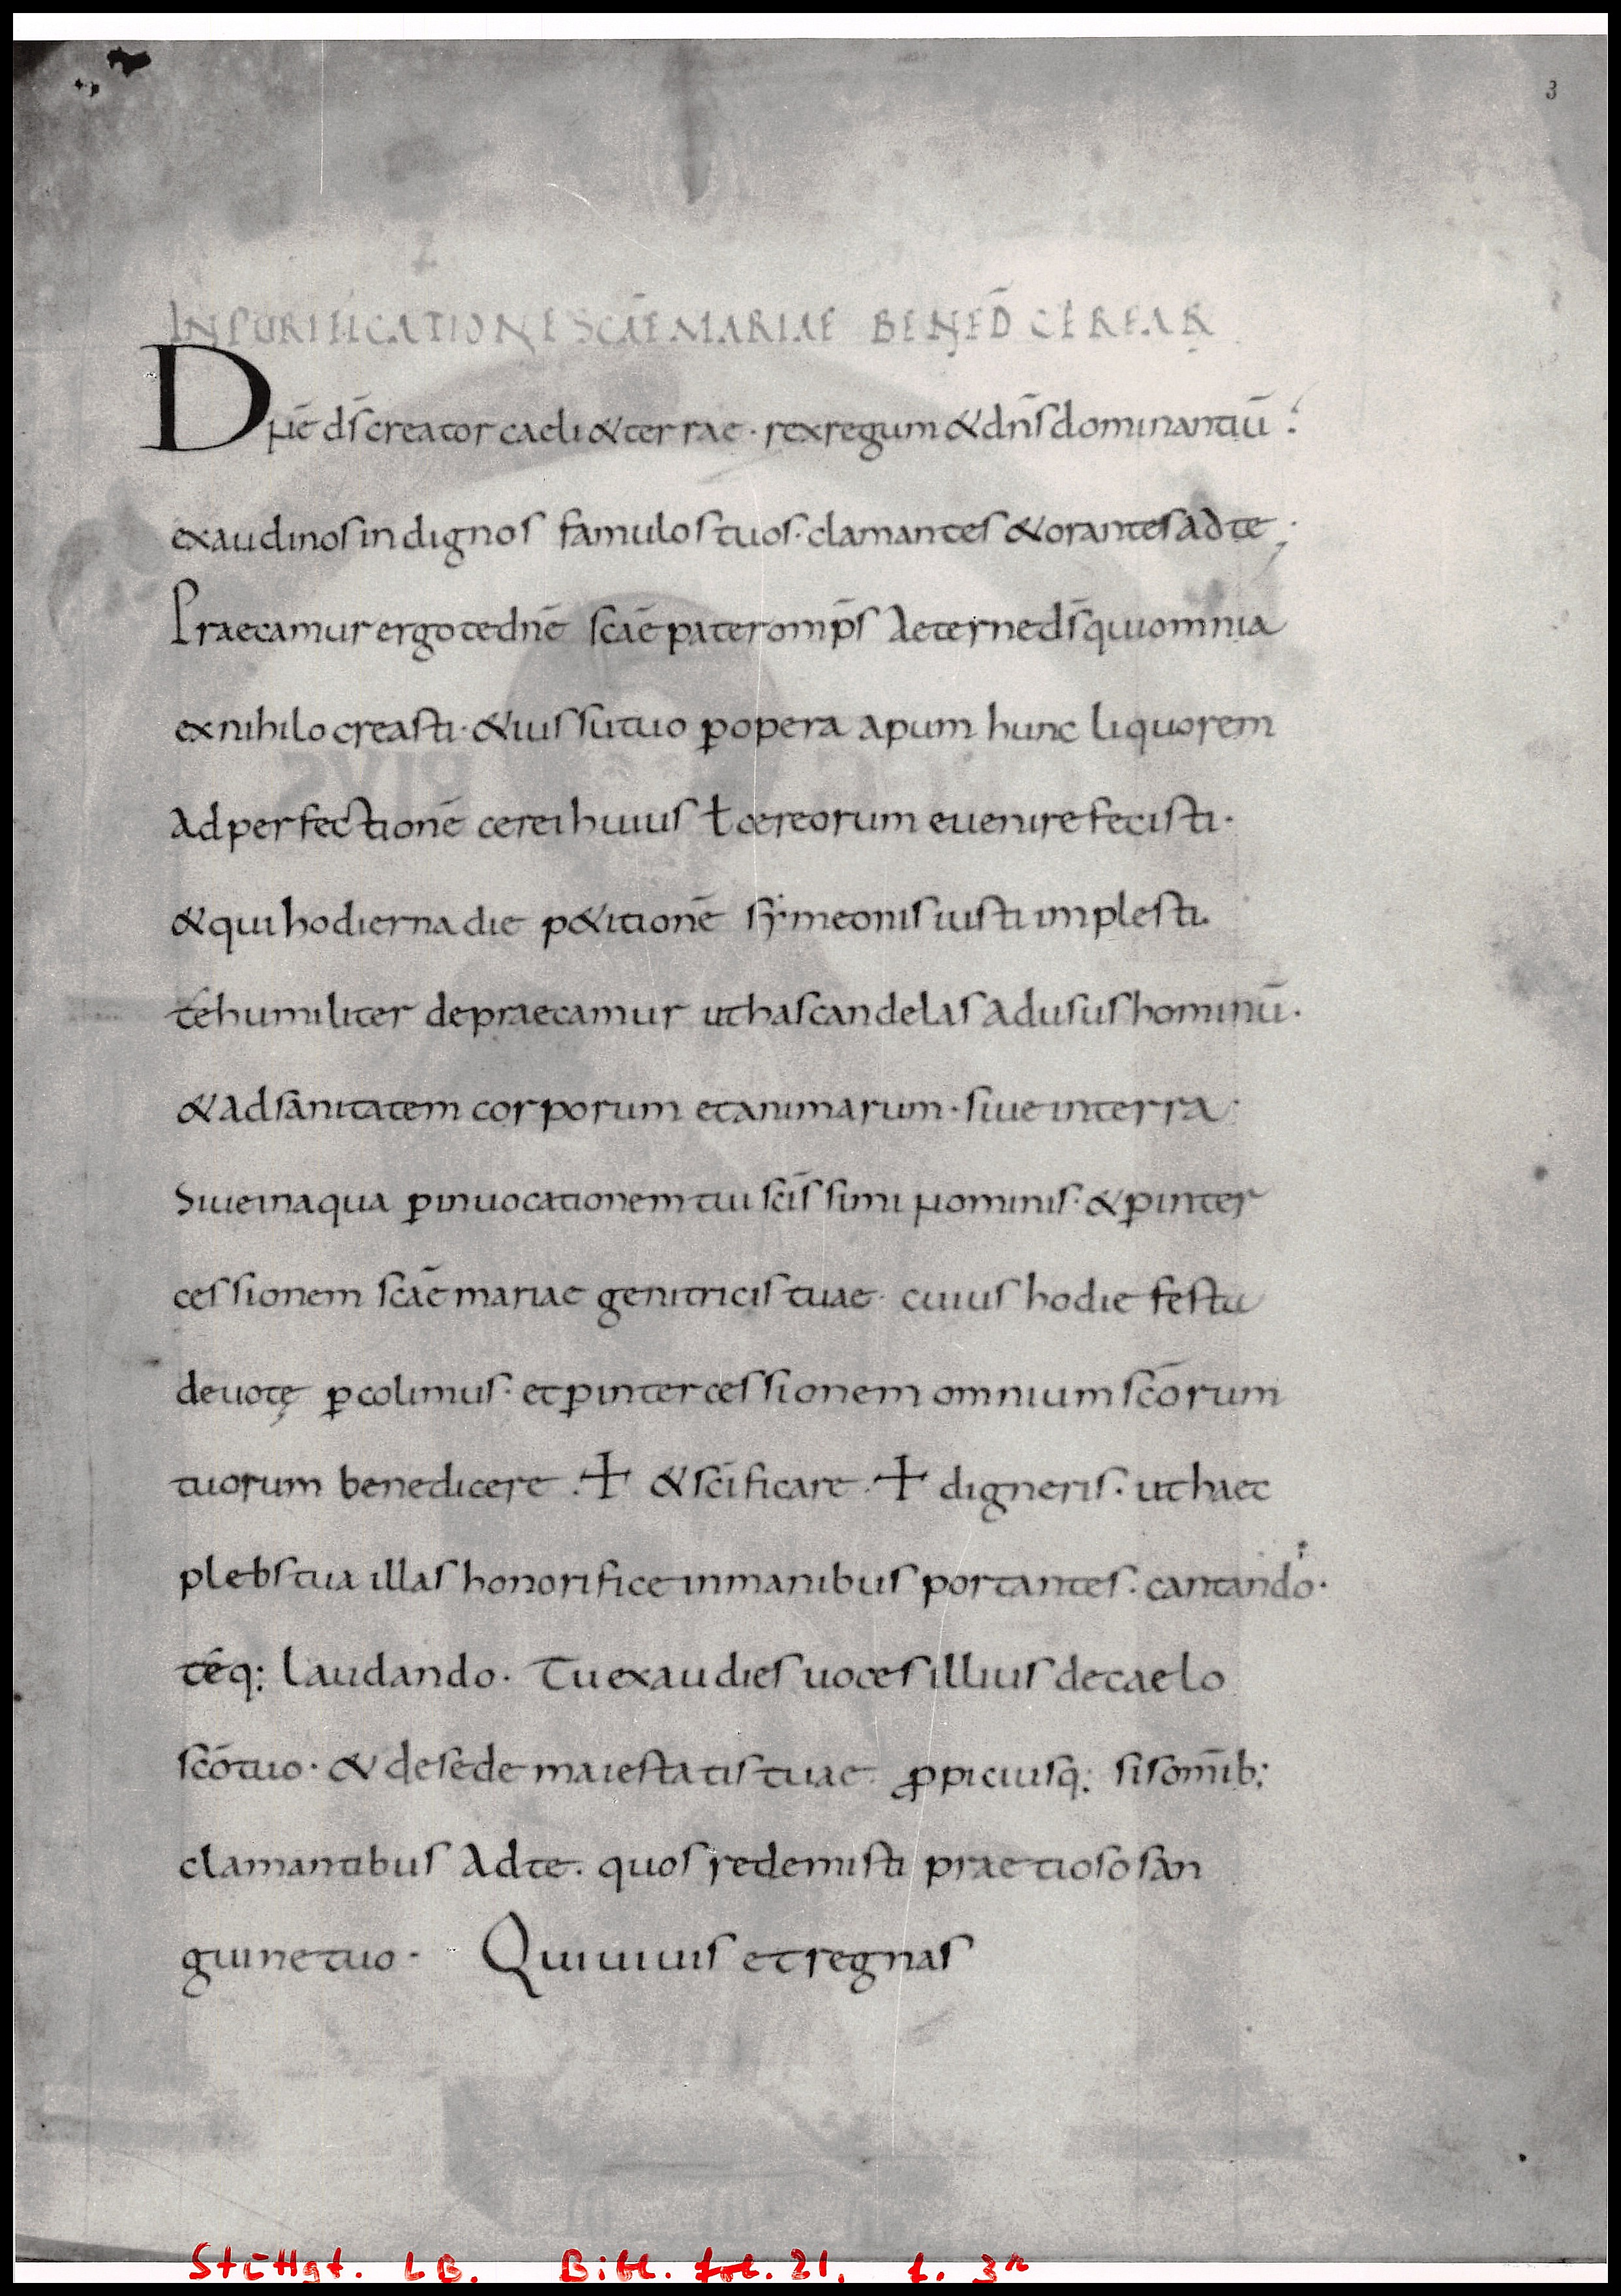 3
IN PURIFICATIONE SCĀE MARIAE BENED̄ CEREAR
Dn̄e ds̄ creator caeli & terrae · rex regum & dn̄s dominantiū :
exaudi nos indignos famulos tuos · clamantes & orantes ad te ;
Praecamur ergo te dn̄e scāe pater omp̄s aeterne ds̄ qui omnia
ex nihilo creasti · & iussu tuo ꝑ opera apum hunc liquorem
ad perfectionē cerei huius ł cereorum euenire fecisti ·
& qui hodierna die p&itionē sẏmeonis iusti implesti.
te humiliter depraecamur ut has candelas ad usus hominū ·
& ad sanitatem corporum et animarum · siue in terra ·
Siue in aqua ꝑ inuocationem tui scīssimi nominis · & ꝑ inter
cessionem scāe mariae genitricis tuae · cuius hodie festa
deuotę ꝑcolimus · et ꝑ intercessionem omnium scōrum
tuorum benedicere · ✝ & scīficare · ✝ digneris · ut haec
plebs tua illas honorifice in manibus portantes · cantando ·
teq; laudando · Tu exaudies uoces illius de caelo
scō tuo · & de sede maiestatis tuae · ꝓpiciusq; sis om̄ib;
clamantibus ad te · quos redemisti praetioso san
guine tuo · Qui uiuis et regnas
Stuttgt. LB. Bibl. fol. 21, f. 3r